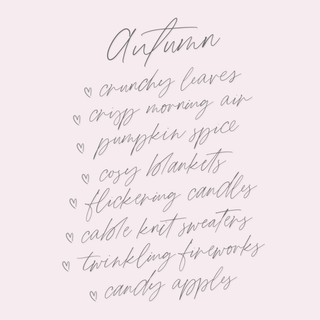 Autumn
♡ crunchy leaves
♡ crisp morning air
♡ pumpkin spice
♡ cosy blankets
♡ flickering candles
♡ cable knit sweaters
♡ twinkling fireworks
♡ candy apples